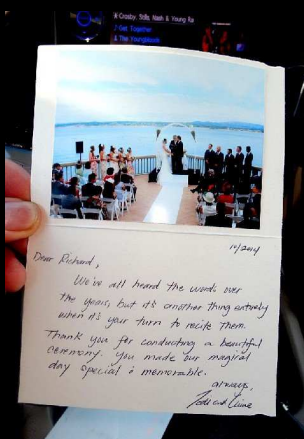 Crosby, Stills, Nash & Young Ra
Get Together
The Youngbloods
10/2014
Dear Richard,
We've all heard the words over
the years, but it's another thing entirely
when it's your turn to recite them.
Thank you for conducting a beautiful
ceremony. You made our magical
day special & memorable.
always,